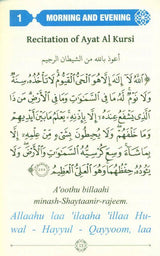 1
MORNING AND EVENING
Recitation of Ayat Al Kursi
أعوذ بالله من الشيطان الرجيم
﴿ٱللَّهُ لَآ إِلَٰهَ إِلَّا هُوَ ٱلْحَىُّ ٱلْقَيُّومُ لَا تَأْخُذُهُۥ سِنَةٌ
وَلَا نَوْمٌ لَّهُۥ مَا فِى ٱلسَّمَٰوَٰتِ وَمَا فِى ٱلْأَرْضِ مَن ذَا
ٱلَّذِى يَشْفَعُ عِندَهُۥٓ إِلَّا بِإِذْنِهِۦ يَعْلَمُ مَا بَيْنَ أَيْدِيهِمْ
وَمَا خَلْفَهُمْ وَلَا يُحِيطُونَ بِشَىْءٍ مِّنْ عِلْمِهِۦٓ إِلَّا
بِمَا شَآءَ وَسِعَ كُرْسِيُّهُ ٱلسَّمَٰوَٰتِ وَٱلْأَرْضَ وَلَا
يَـُٔودُهُۥ حِفْظُهُمَا وَهُوَ ٱلْعَلِىُّ ٱلْعَظِيمُ﴾
A'oothu billaahi
minash-Shaytaanir-rajeem.
Allaahu laa 'ilaaha 'illaa Hu-
wal - Hayyul - Qayyoom, laa